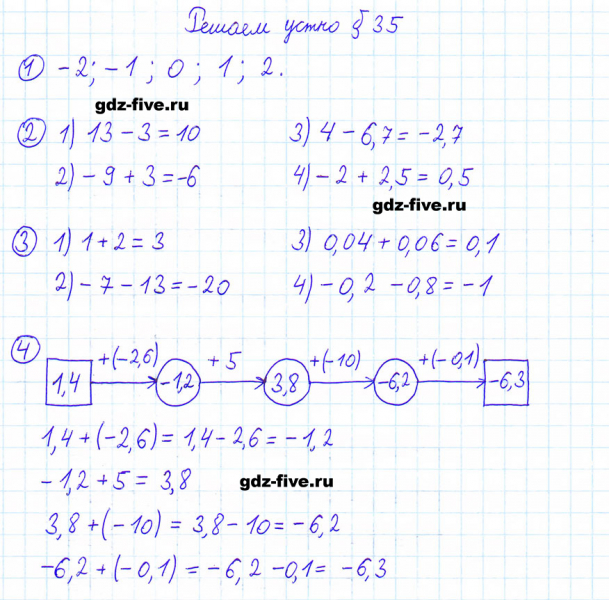 Решаем устно § 35
① -2; -1; 0; 1; 2.
gdz-five.ru
② 1) 13 - 3 = 10 3) 4 - 6,7 = -2,7
2) - 9 + 3 = -6 4) - 2 + 2,5 = 0,5
gdz-five.ru
③ 1) 1 + 2 = 3 3) 0,04 + 0,06 = 0,1
2) - 7 - 13 = -20 4) - 0,2 - 0,8 = -1
④ +(-2,6) + 5 +(-10) +(-0,1)
1,4 -1,2 3,8 -6,2 -6,3
1,4 + (-2,6) = 1,4 - 2,6 = -1,2
- 1,2 + 5 = 3,8
gdz-five.ru
3,8 + (-10) = 3,8 - 10 = -6,2
-6,2 + (-0,1) = -6,2 - 0,1 = -6,3